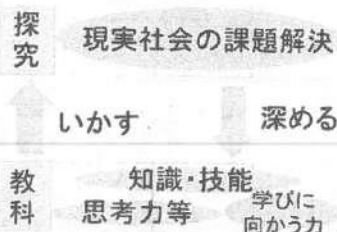 探究
現実社会の課題解決
いかす
深める
教科
知識・技能
思考力等
学びに
向かう力